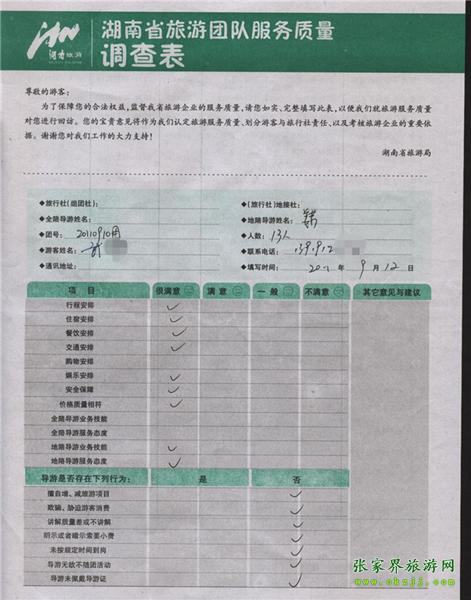 湖南旅游
湖南省旅游团队服务质量
调查表
尊敬的游客：
为了保障您的合法权益，监督我省旅游企业的服务质量，请您如实、完整填写此表，以便我们就旅游服务质量
对您进行回访。您的宝贵意见将作为我们认定旅游服务质量、划分游客与旅行社责任、以及考核旅游企业的重要依
据。谢谢您对我们工作的大力支持！
湖南省旅游局
◆旅行社(组团社)： ◆(旅行社)地接社：
◆全陪导游姓名： ◆地陪导游姓名：
◆团号： 20110910 ◆人数： 13人
◆游客姓名： ◆联系电话： 139912
◆通讯地址： ◆填写时间： 2011 年 9 月 12 日
项 目 很满意 满 意 一 般 不满意 其它意见与建议
行程安排 ✓
住宿安排 ✓
餐饮安排 ✓
交通安排 ✓
购物安排
娱乐安排 ✓
安全保障 ✓
价格质量相符 ✓
全陪导游业务技能
全陪导游服务态度
地陪导游业务技能 ✓
地陪导游服务态度 ✓
导游是否存在下列行为： 是 否
擅自增、减旅游项目 ✓
欺骗、胁迫游客消费 ✓
讲解质量差或不讲解 ✓
明示或者暗示索要小费 ✓
未按规定时间到岗 ✓
导游无故不随团活动 ✓
导游未佩戴导游证 ✓
张家界旅游网
www.okzjj.com